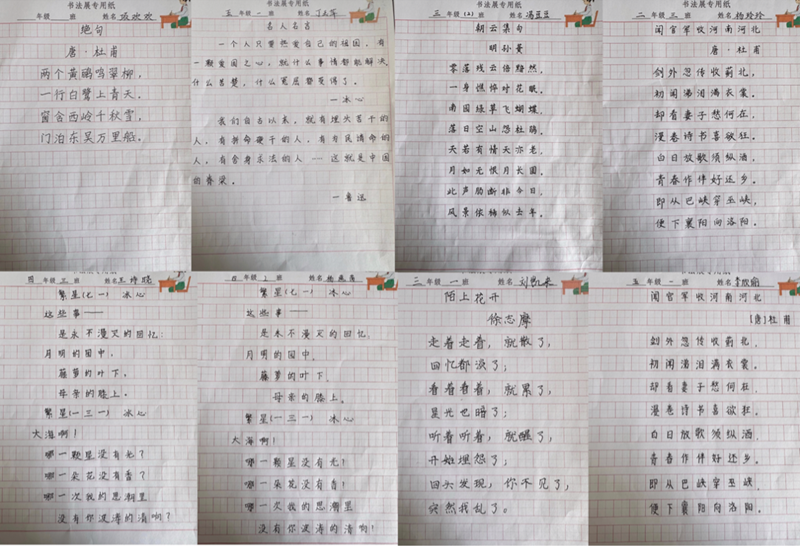 书法展专用纸
年级 班 姓名 欢欢
绝句
唐·杜甫
两个黄鹂鸣翠柳,
一行白鹭上青天。
窗含西岭千秋雪,
门泊东吴万里船。
书法展专用纸
五 年级 一 班 姓名
名人名言
一个人只要热爱自己的祖国,有
一颗爱国之心,就什么事情都能解决,
什么苦楚,什么冤屈都受得了。
—冰心
我们自古以来,就有埋头苦干的
人,有拼命硬干的人,有为民请命的
人,有舍身求法的人 — 这就是中国
的脊梁。
—鲁迅
书法展专用纸
三 年级 (2) 班 姓名 冯豆豆
朝云集句
明孙蕡
零落残云倍黯然,
一身憔悴对花眠。
南园绿草飞蝴蝶,
落日空山怨杜鹃。
天若有情天亦老,
月如无恨月长圆。
此声肠断非今日,
风景依稀似去年。
书法展专用纸
二 年级 三 班 姓名 杨玲玲
闻官军收河南河北
唐·杜甫
剑外忽传收蓟北,
初闻涕泪满衣裳。
却看妻子愁何在,
漫卷诗书喜欲狂。
白日放歌须纵酒,
青春作伴好还乡。
即从巴峡穿巫峡,
便下襄阳向洛阳。
书法展专用纸
四 年级 三 班 姓名
繁星(七一) 冰心
这些事——
是永不漫灭的回忆:
月明的园中,
藤萝的叶下,
母亲的膝上。
繁星(一三一) 冰心
大海啊!
哪一颗星没有光?
哪一朵花没有香?
哪一次我的思潮里
没有你波涛的清响?
书法展专用纸
四 年级 班 姓名
繁星(七一) 冰心
这些事——
是永不漫灭的回忆,
月明的园中,
藤萝的叶下,
母亲的膝上。
繁星(一三一) 冰心
大海啊!
哪一颗星没有光!
哪一朵花没有香!
哪一次我的思潮里
没有你波涛的清响!
三 年级 一 班 姓名 刘凯来
陌上花开
徐志摩
走着走着,就散了,
回忆都淡了;
看着看着,就累了,
星光也暗了;
听着听着,就醒了,
开始埋怨了;
回头发现,你不见了,
突然我乱了。
五 年级 一 班 姓名
闻官军收河南河北
[唐]杜甫
剑外忽传收蓟北,
初闻涕泪满衣裳。
却看妻子愁何在,
漫卷诗书喜欲狂。
白日放歌须纵酒,
青春作伴好还乡。
即从巴峡穿巫峡,
便下襄阳向洛阳。